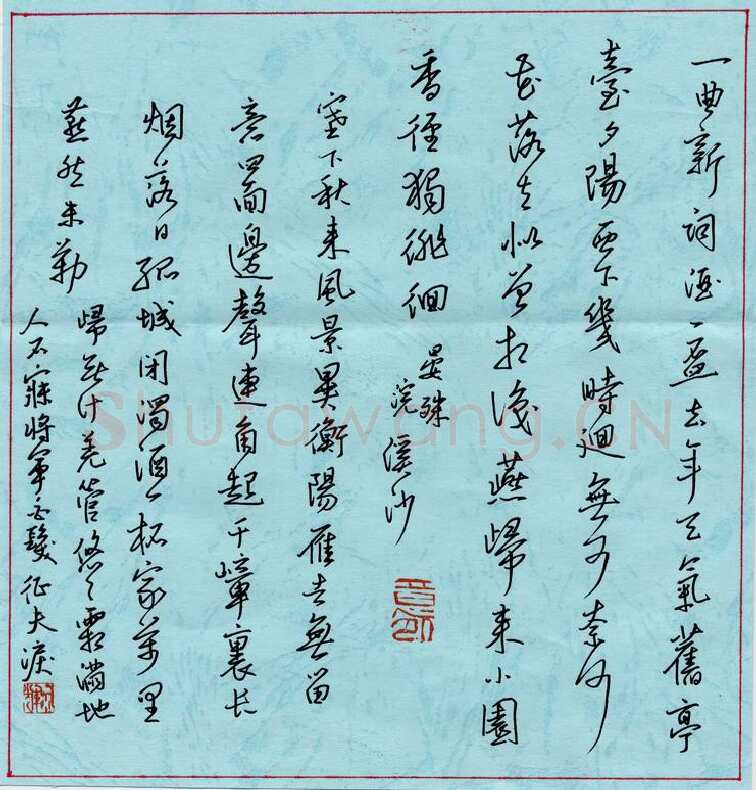 一曲新詞酒一盃去年天氣舊亭
臺夕陽西下幾時迴無可奈何
花落去似曾相识燕歸来小園
香徑獨徘徊
晏殊
浣溪沙
塞下秋来風景異衡陽雁去無留
意四面邊聲連角起千嶂裏长
烟落日孤城闭濁酒一杯家萬里
燕然未勒
歸無计羌管悠悠霜滿地
人不寐將軍白髮征夫淚
Shufawang.CN